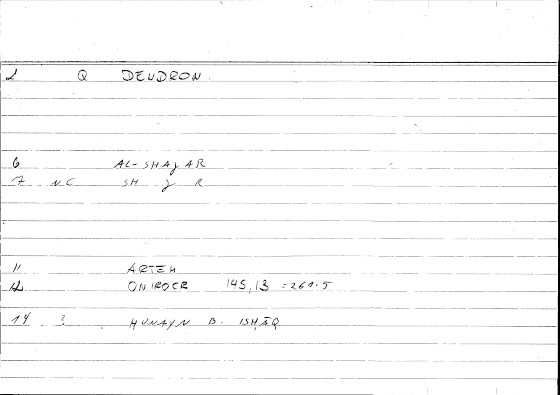 2 Q DENDRON.
6 AL-SHAJAR
7 NC SH J R
11 ARTEM
12 ONIROCR 145,13 = 261.5
14 ? HUNAYN B. ISḤĀQ